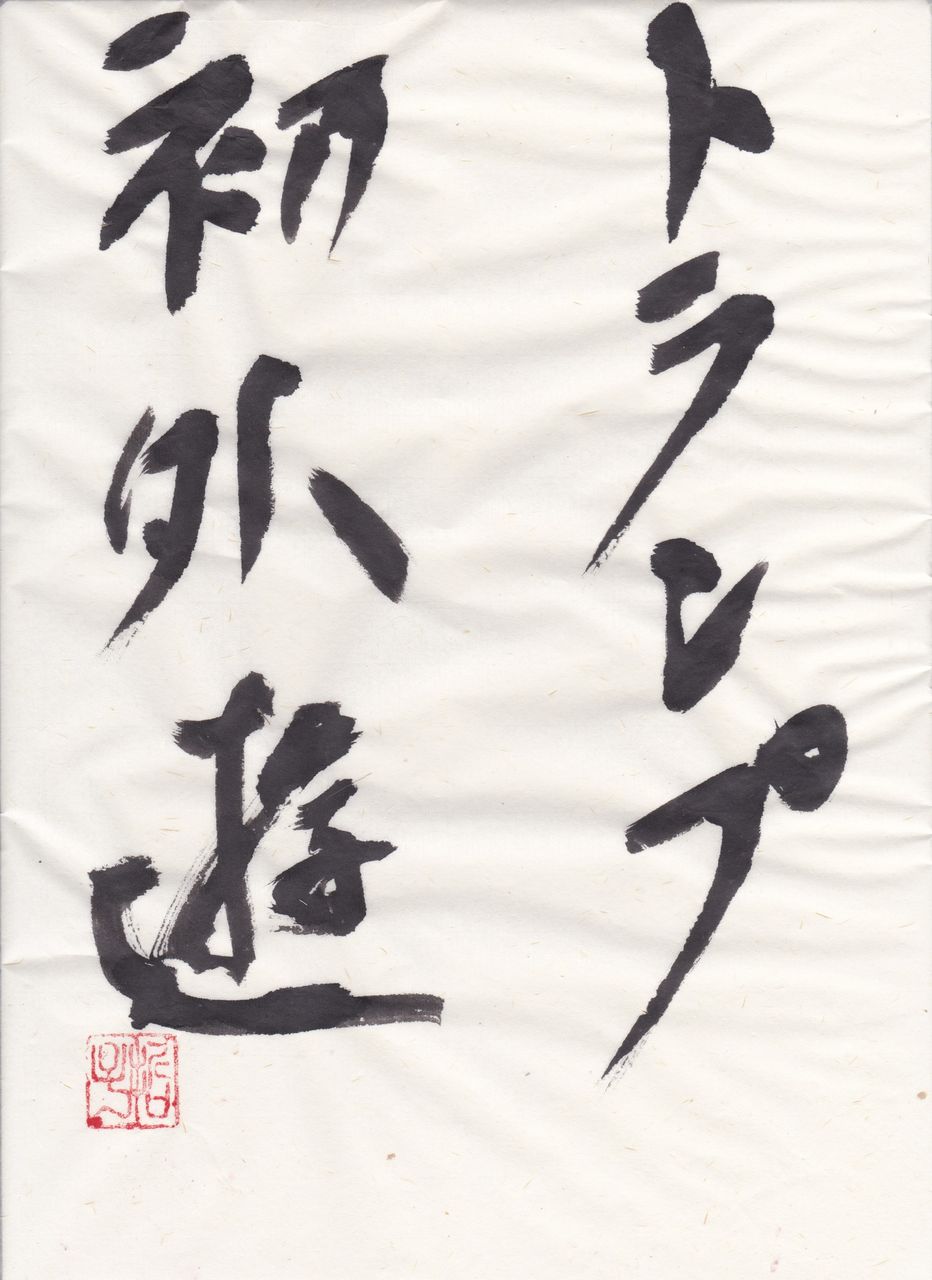 トランプ
初外遊